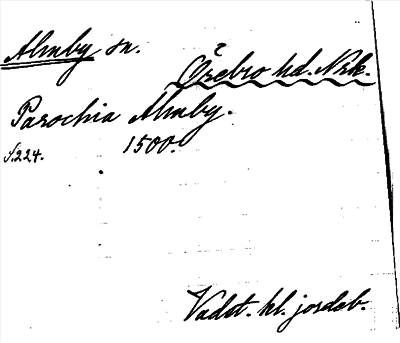 Almby sn.
Örebro hd. Nrk.
Parochia Almby.
s. 224. 1500.
Vadst. kl. jordeb.